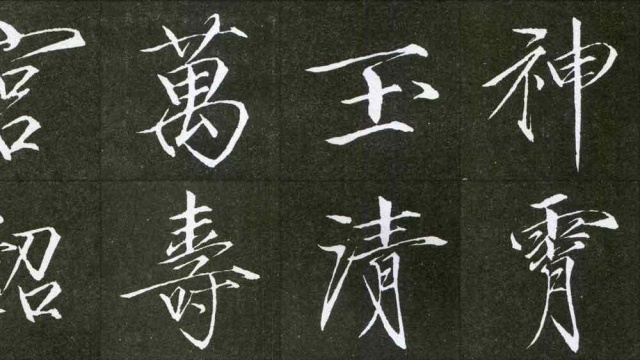 神霄
玉清
萬壽
宮詔